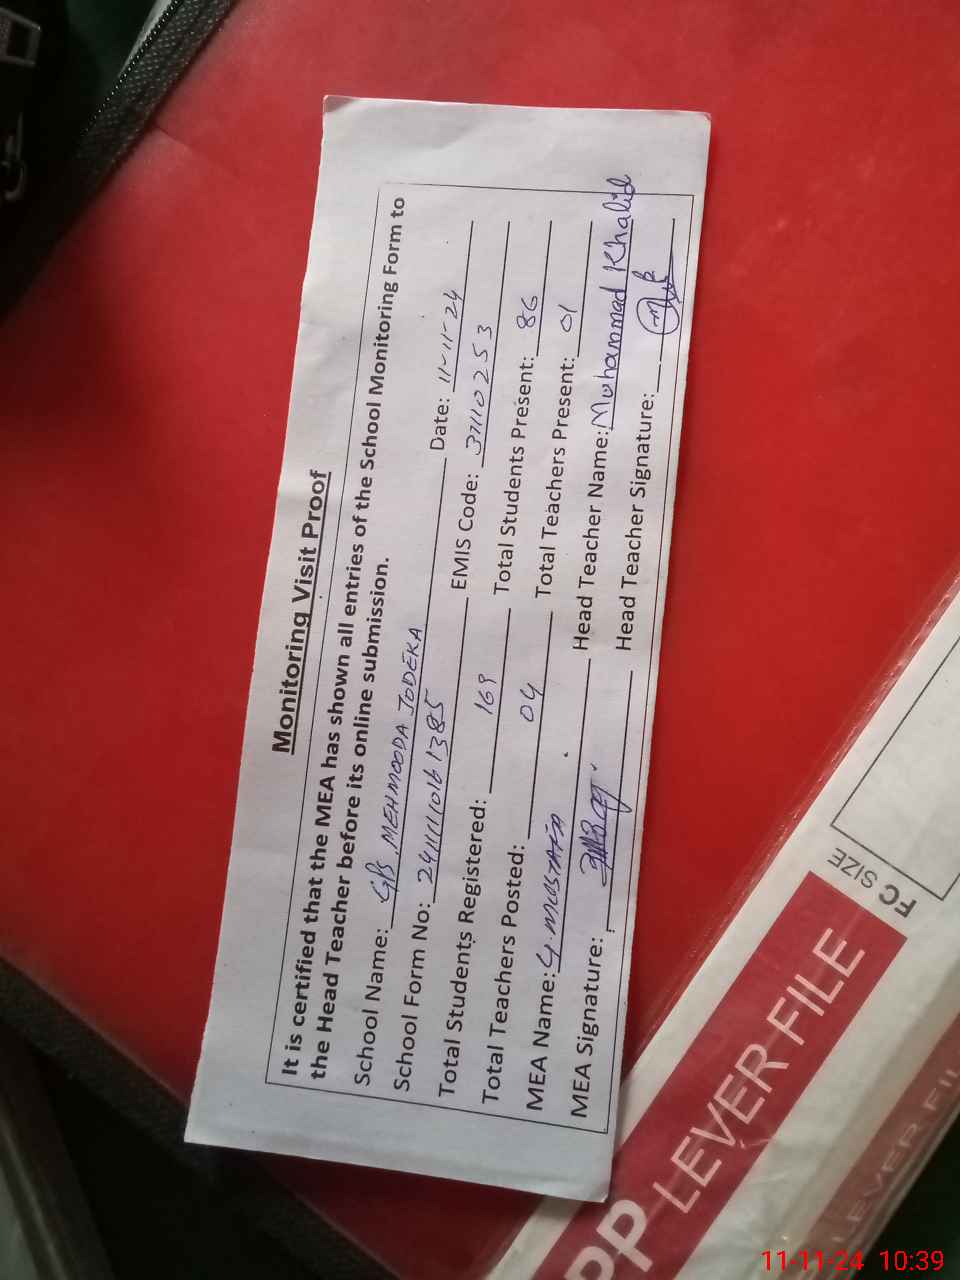 Monitoring Visit Proof
It is certified that the MEA has shown all entries of the School Monitoring Form to
the Head Teacher before its online submission.
School Name: GPS. MEHMOODA JODEKA Date: 11-11-24
School Form No: 241111016 1385 EMIS Code: 37110253
Total Students Registered: 169 Total Students Present: 86
Total Teachers Posted: 04 Total Teachers Present: 01
MEA Name: G. MUSTAFA Head Teacher Name: Muhammad Khalid
MEA Signature: Head Teacher Signature:
FC SIZE
PP LEVER FILE
EVER FI
11-11-24 10:39